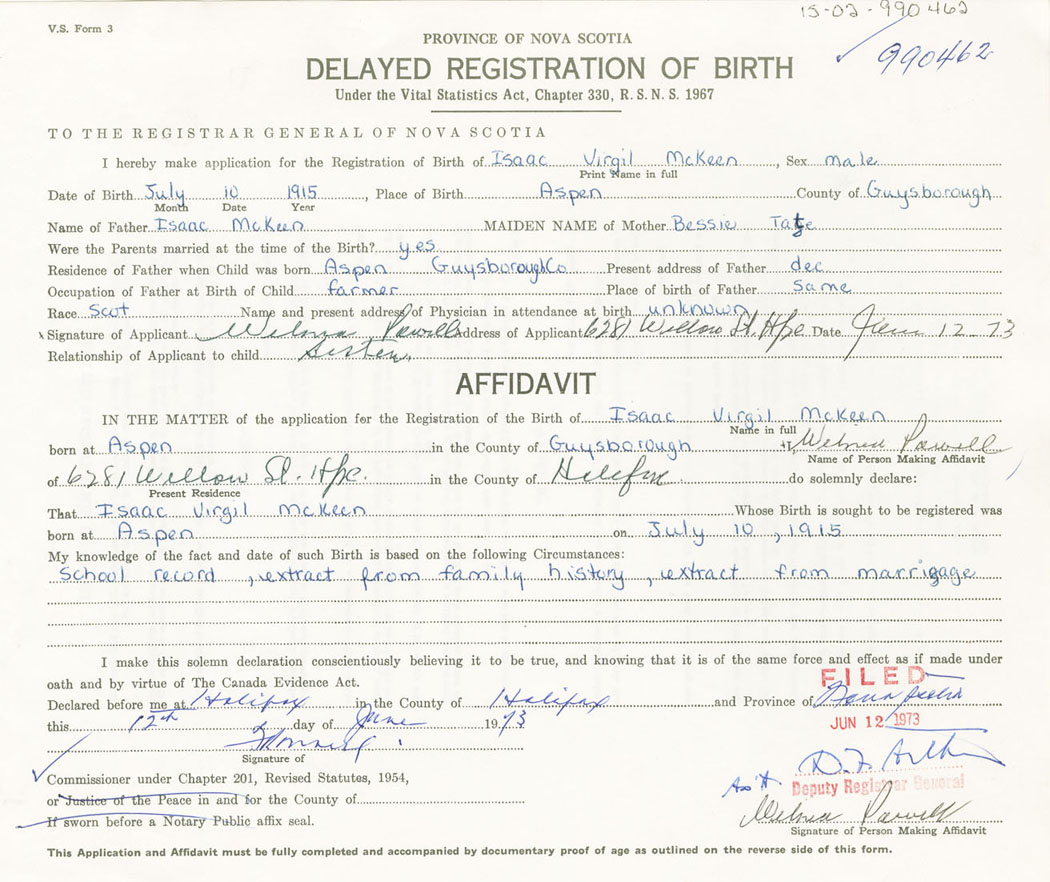 15-02-990462
V.S. Form 3
990462
PROVINCE OF NOVA SCOTIA
DELAYED REGISTRATION OF BIRTH
Under the Vital Statistics Act, Chapter 330, R. S. N. S. 1967
TO THE REGISTRAR GENERAL OF NOVA SCOTIA
I hereby make application for the Registration of Birth of Isaac Virgil McKeen, Sex male
Print Name in full
Date of Birth July 10 1915, Place of Birth Aspen County of Guysborough
Month Date Year
Name of Father Isaac McKeen MAIDEN NAME of Mother Bessie Tate
Were the Parents married at the time of the Birth? yes
Residence of Father when Child was born Aspen Guysborough Co Present address of Father dec
Occupation of Father at Birth of Child farmer Place of birth of Father same
Race Scot Name and present address of Physician in attendance at birth unknown
Signature of Applicant Wilma Powell Address of Applicant 6281 Willow St. Hfx Date June 12 73
Relationship of Applicant to child Sister
AFFIDAVIT
IN THE MATTER of the application for the Registration of the Birth of Isaac Virgil McKeen
Name in full
born at Aspen in the County of Guysborough I, Wilma Powell
Name of Person Making Affidavit
of 6281 Willow St. Hfx. in the County of Halifax do solemnly declare:
Present Residence
That Isaac Virgil McKeen Whose Birth is sought to be registered was
born at Aspen on July 10, 1915
My knowledge of the fact and date of such Birth is based on the following Circumstances:
School record, extract from family history, extract from marrigage
I make this solemn declaration conscientiously believing it to be true, and knowing that it is of the same force and effect as if made under
oath and by virtue of The Canada Evidence Act.
FILED
Declared before me at Halifax in the County of Halifax and Province of Nova Scotia
this 12th day of June 1973
JUN 12 1973
Signature of
Commissioner under Chapter 201, Revised Statutes, 1954,
or Justice of the Peace in and for the County of
Ass't Deputy Registrar General
If sworn before a Notary Public affix seal.
Wilma Powell
Signature of Person Making Affidavit
This Application and Affidavit must be fully completed and accompanied by documentary proof of age as outlined on the reverse side of this form.